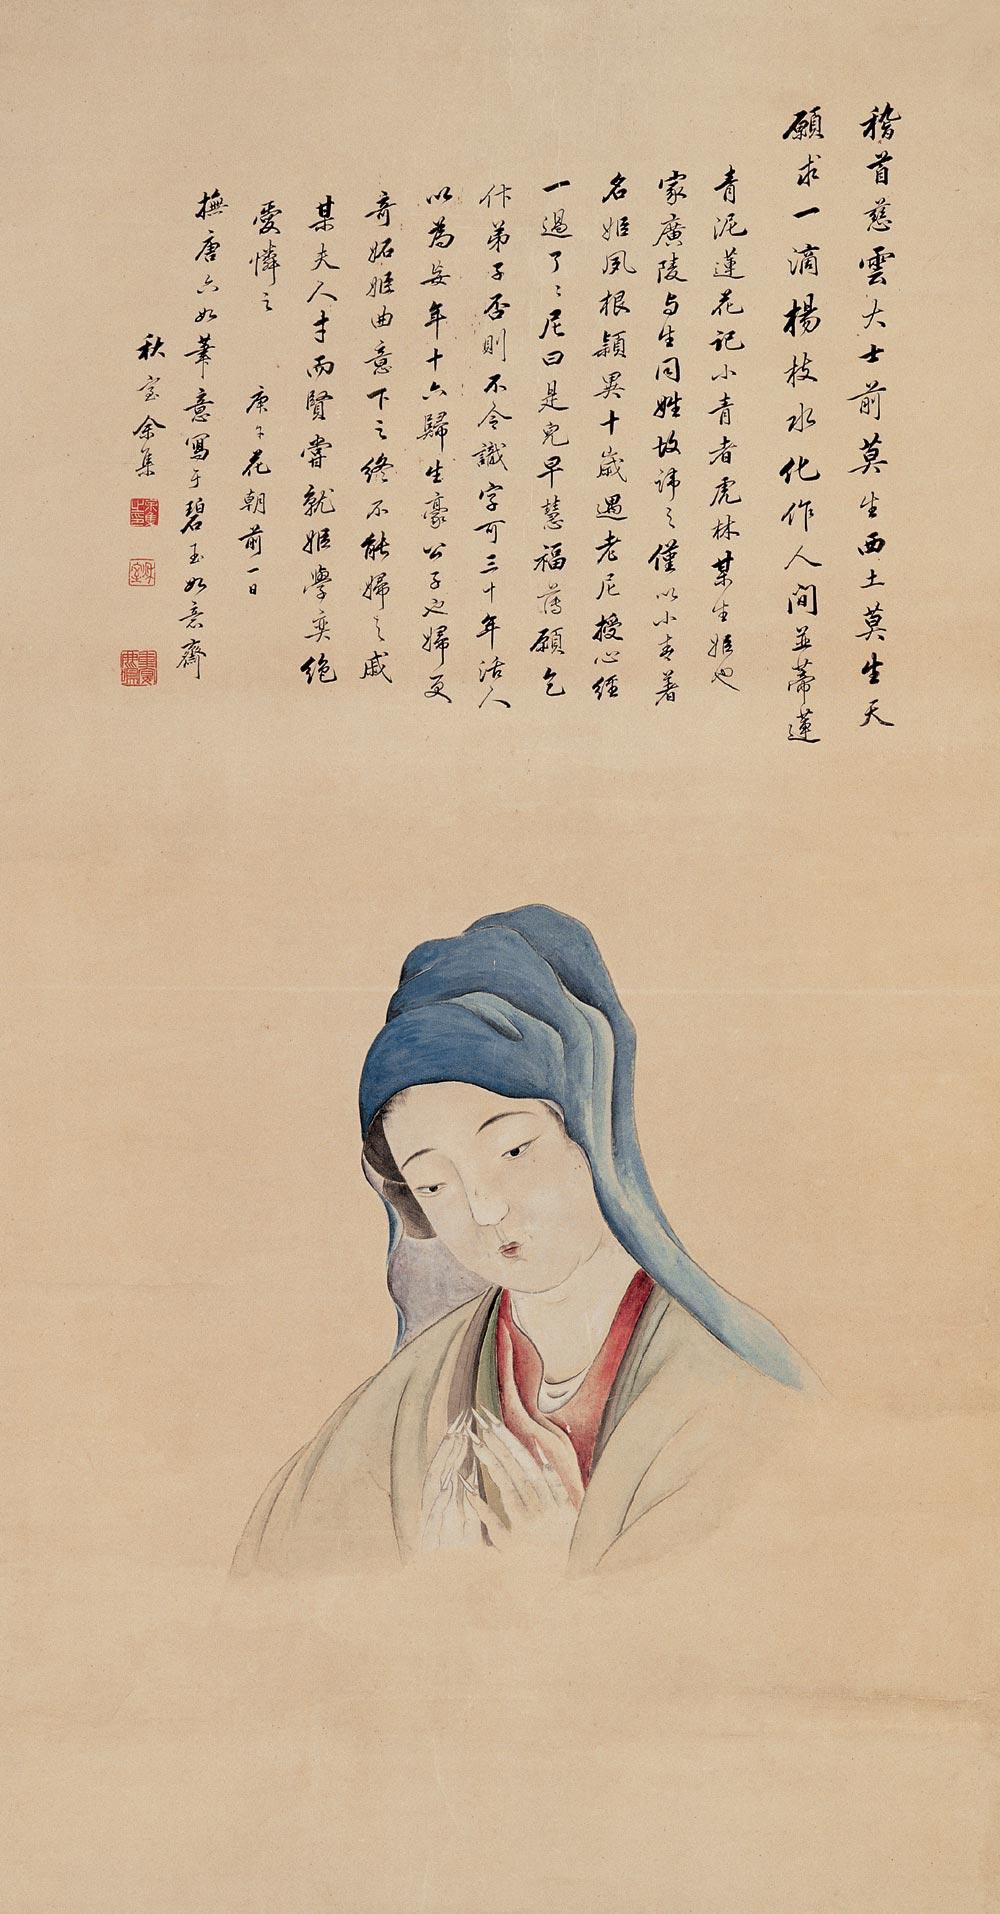 稽首慈雲大士前莫生西土莫生天
願求一滴楊枝水化作人間並蒂蓮
青泥蓮花記小青者虎林某生姬也
家廣陵与生同姓故諱之僅以小青著
名姬夙根頴異十歲遇老尼授心經
一過了〻尼曰是兒早慧福薄願乞
作弟子否則不令識字可三十年活人
以為妄年十六歸生豪公子也婦更
奇妬姬曲意下之終不能婦之戚
某夫人才而賢嘗就姬學奕絶
愛憐之
庚子花朝前一日
撫唐六如筆意寫于碧玉如意齋
秋室余集